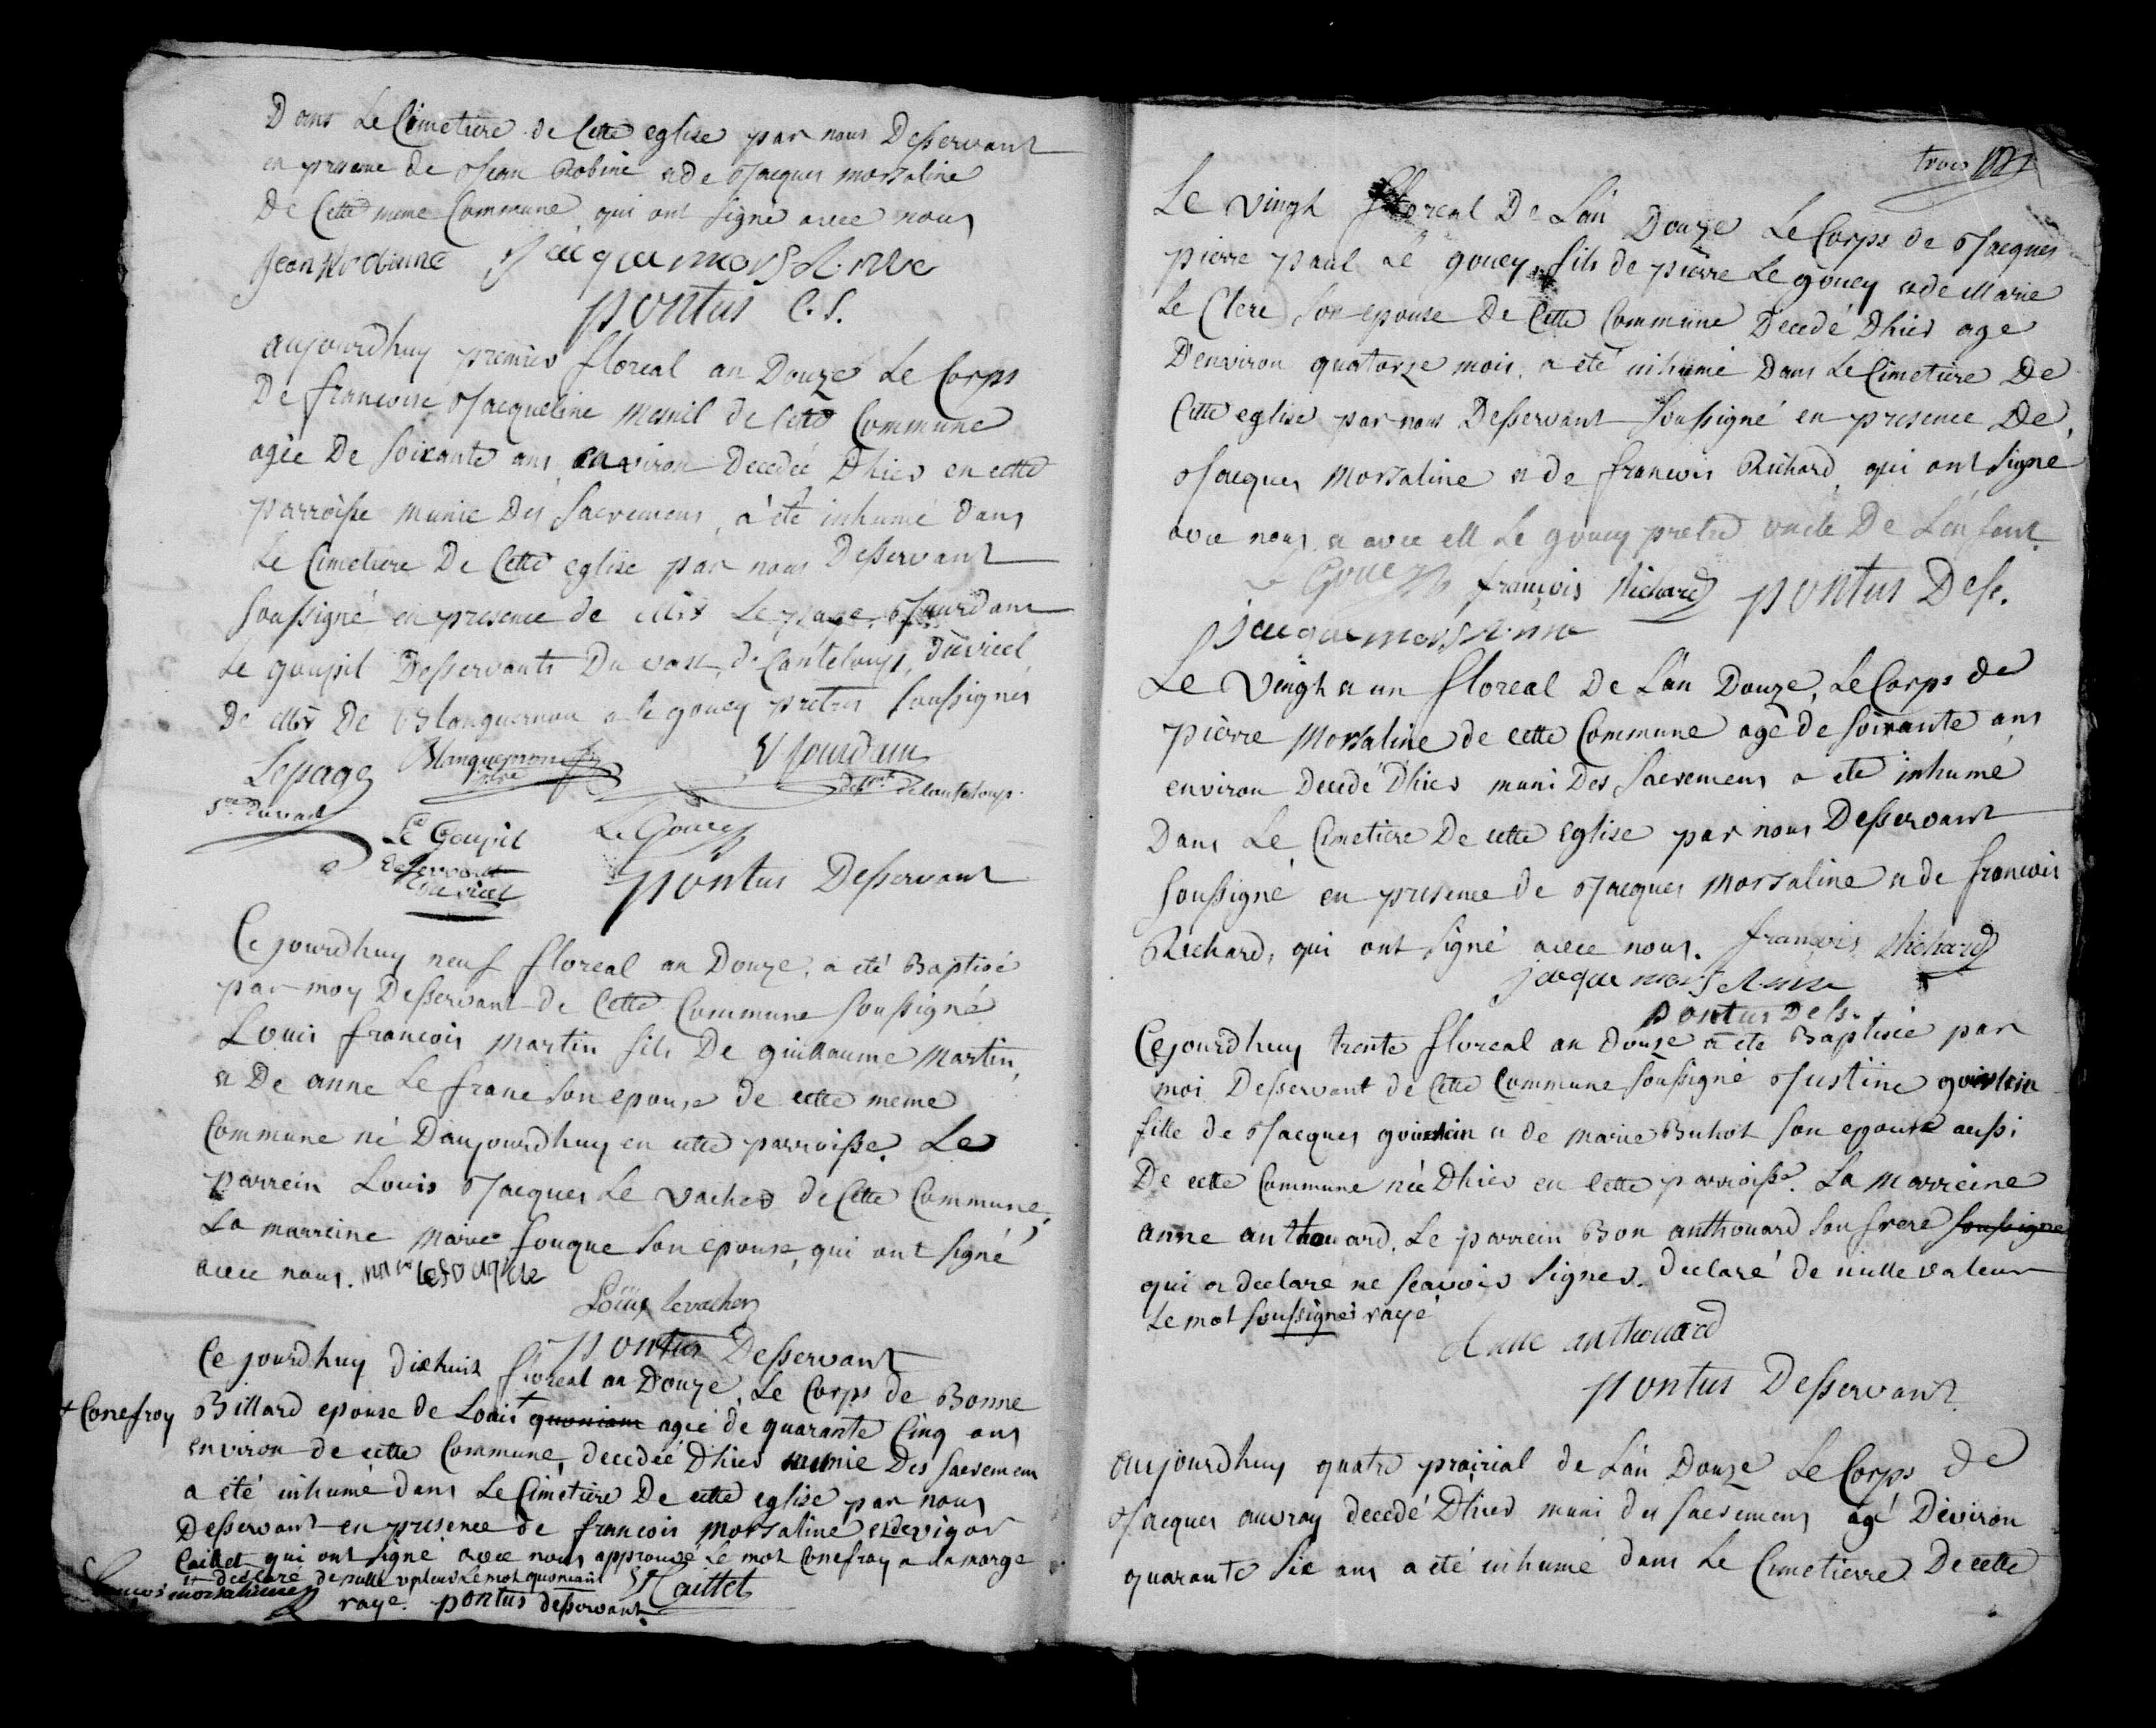 Dans Le Cimetiere de Cette eglise par nous Desservant
en presence de Jean Robine et de Jacques morsaline
De Cette meme Commune qui ont signé avec nous
Jean Robinne Jacque morsaline
pontus C.S.
aujourdhuy premier floreal an Douze Le Corps
De francoise Jacqueline Mesnil de Cette Commune
agée De soixante ans environ Decedée Dhier en cette
parroisse munie Des Sacremens, a été inhumé dans
Le Cimetiere De Cette eglise par nous Desservant
soussigné en presence de Mrs Le page, Jourdan
Le goupil Desservants Du vast, de Canteloup, du vicel,
De Mrs De Blanquernon et le gouey pretres soussignés
Lepage Blanquernon ptre Jourdan
Le Goupil Le Gouey
desservant du vicel
pontus Desservant
Ce jourdhuy neuf floreal an Douze, a été Baptisé
par moy Desservant de Cette Commune soussigné
Louis francois Martin fils De guillaume Martin,
et De anne Le franc son epouse de cette meme
Commune né Daujourdhuy en cette parroisse. Le
parrein Louis Jacques Le vacher de Cette Commune,
La marreine Marie fouque son epouse, qui ont signé
avec nous.
Louis levacher
pontus Desservant
Ce jourdhuy dixhuit floreal an Douze, Le Corps de Bonne
+ Conefroy Billard epouse de Louis + quoniam agée de quarante Cinq ans
environ de cette Commune, decedée Dhier munie Des sacremens
a été inhumé dans Le Cimetiere De cette eglise par nous
Desservant en presence de francois morsaline et de vigor
Caillet qui ont signé avec nous approuvé Le mot Conefroy a la marge
et declaré de nulle valeur Le mot quoniam
francois morsaline rayé. pontus desservant V Caillet
trois
Le vingt floreal De L'an Douze Le Corps de Jacques
pierre paul Le gouey, fils de pierre Le gouey et de Marie
Le Clerc son epouse De Cette Commune Decedé Dhier age
D'environ quatorze mois, a été inhumé Dans Le Cimetiere De
Cette eglise par nous Desservant soussigné en presence De,
Jacques Morsaline et de francois Richard, qui ont signé
avec nous et avec Mr Le gouey pretre oncle De L'enfant.
Le Gouey francois Richard pontus Dess.
jacque morsaline
Le Vingt et un floreal De L'an Douze, Le Corps de
pierre Morsaline de cette Commune agé de soixante ans
environ Decedé Dhier muni Des Sacremens a été inhumé
Dans Le Cimetiere De cette eglise par nous Desservant
soussigné en presence de Jacques Morsaline et de francois
Richard, qui ont signé avec nous. francois Richard
jacque morsaline
pontus Dess.
Cejourdhuy trente floreal an douze a été Baptisée par
moi Desservant de Cette Commune soussigné Justine
fille de Jacques et de marie Buhot son epouse aussi
De cette Commune née Dhier en cette parroisse. La Marreine
anne anthouard, Le parrein Bon anthouard son frere soussigné
qui a declaré ne scavoir signer. declaré de nulle valeur
Le mot soussigné rayé
Anne anthouard
pontus Desservant
aujourdhuy quatre prairial de L'an Douze Le Corps de
Jacques auvray decedé Dhier muni des sacremens agé Deviron
quarante six ans a été inhumé dans Le Cimetierre De cette